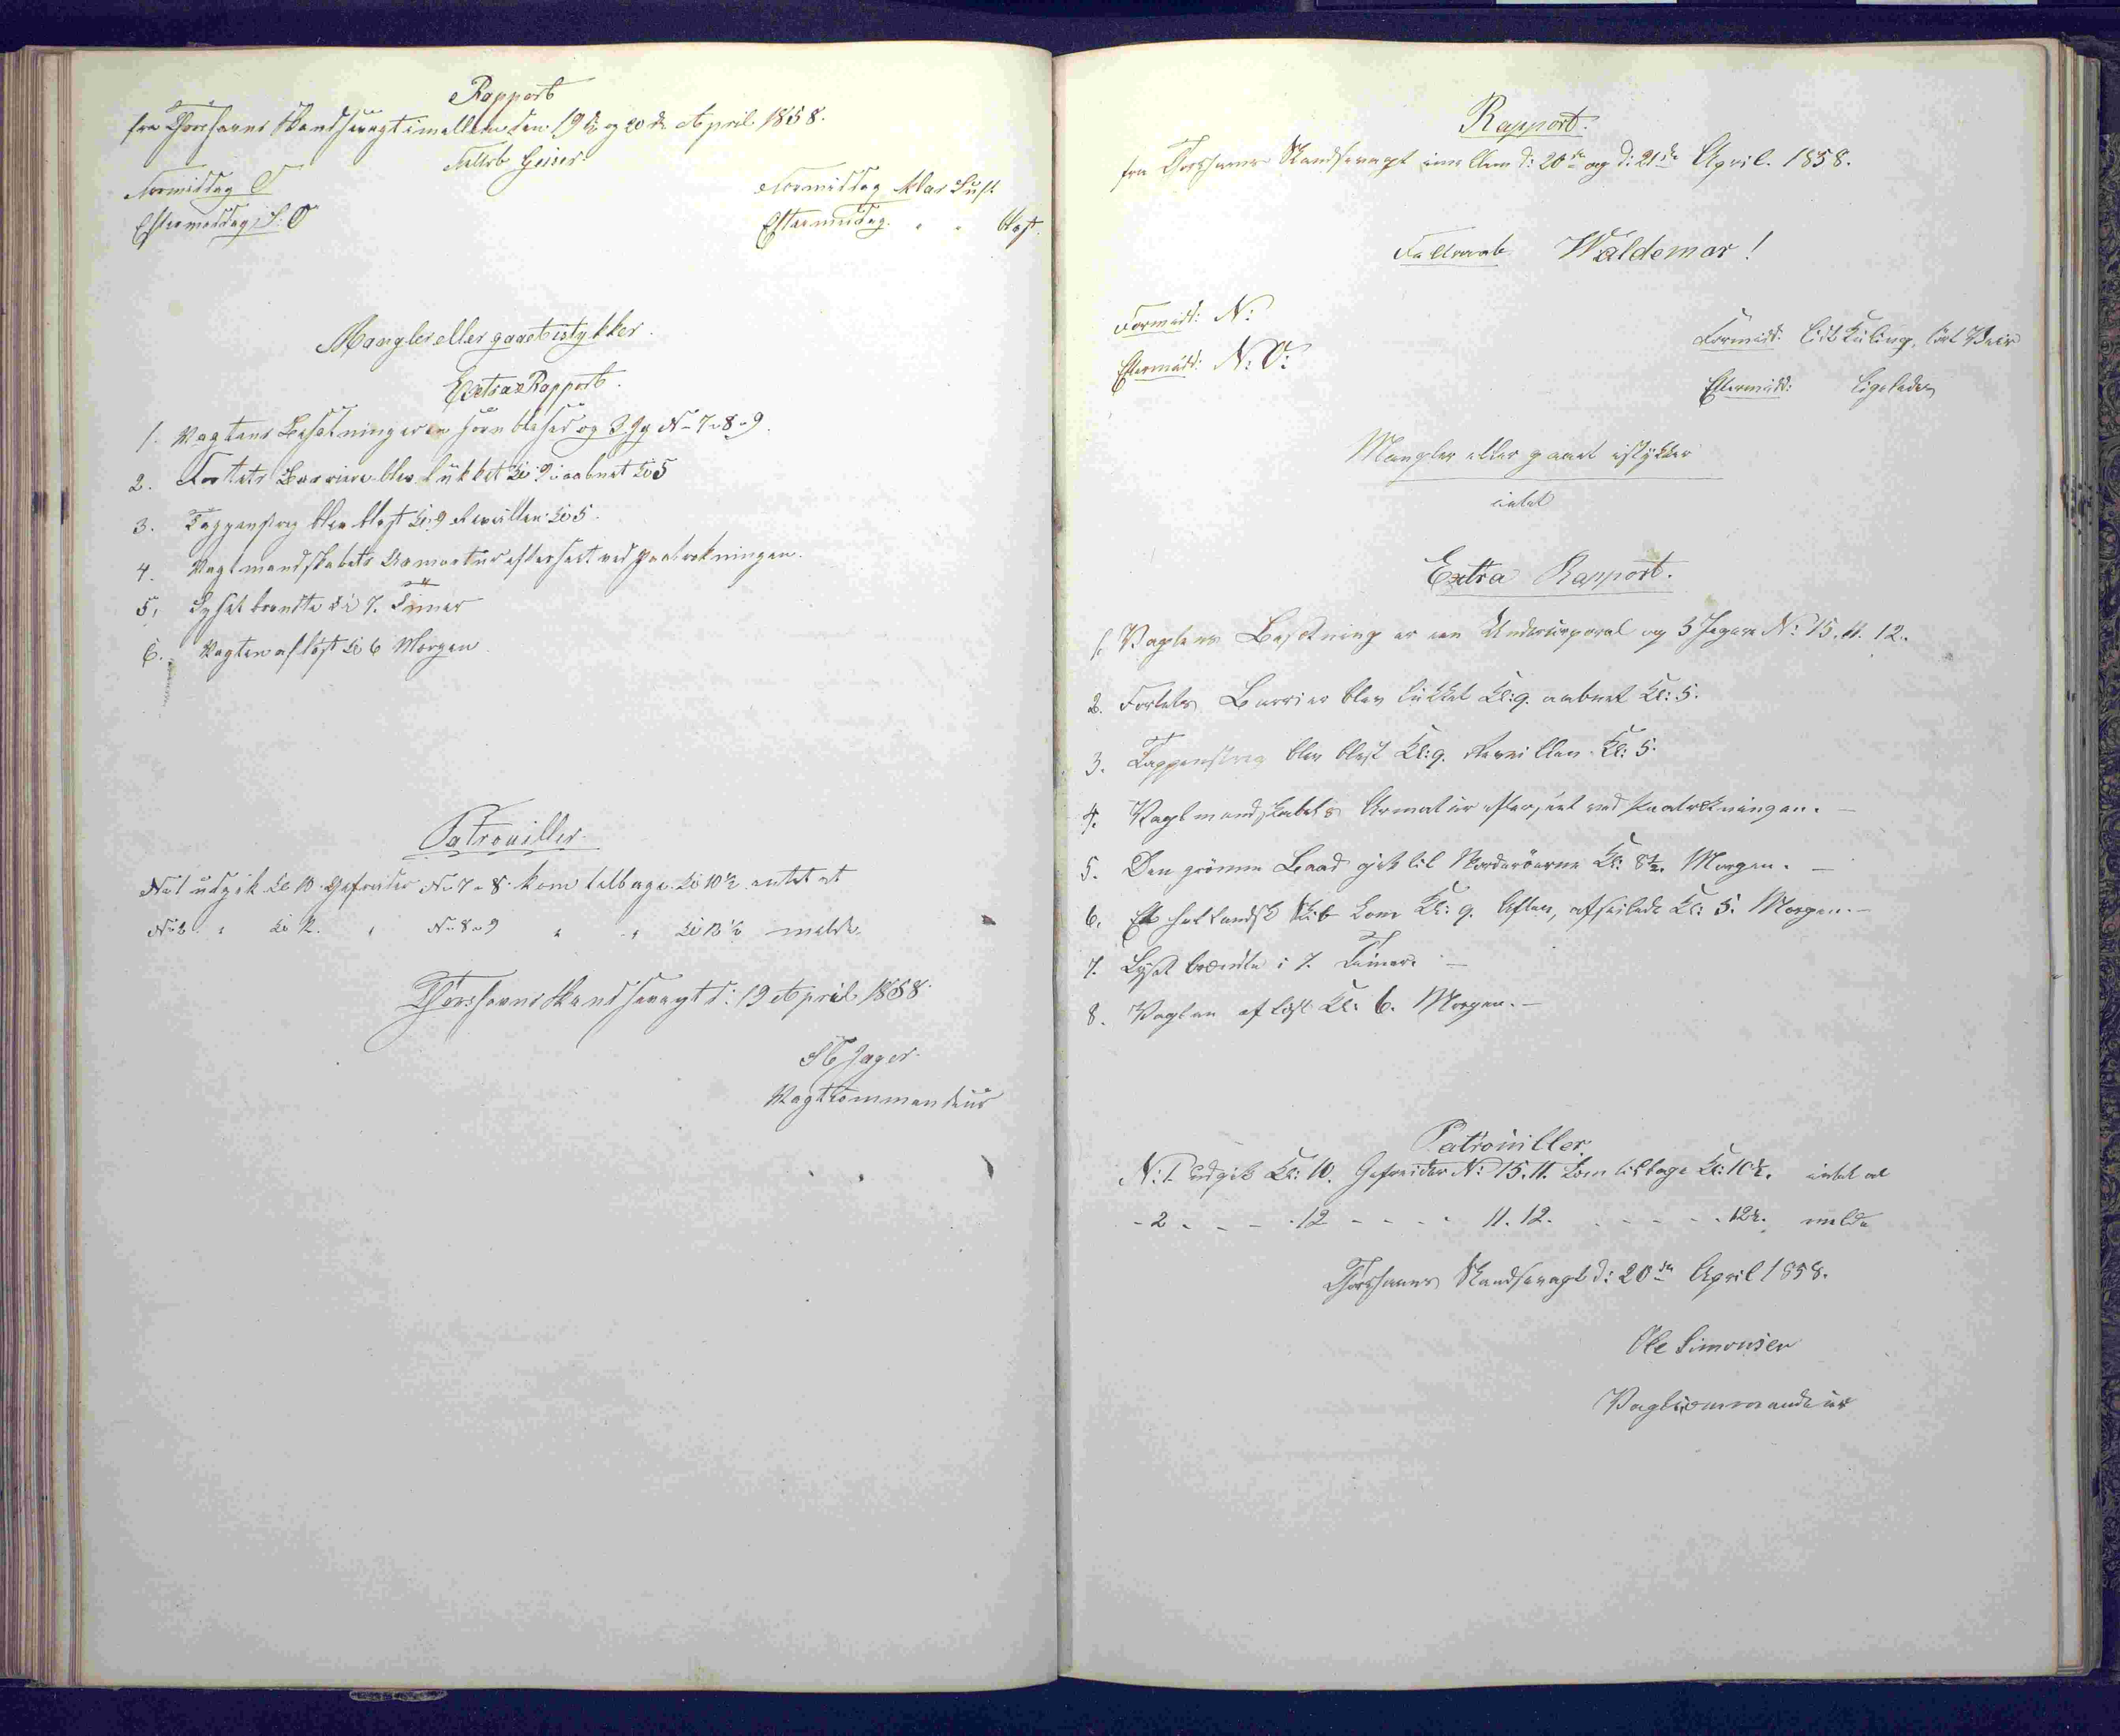 Rapport
fra Thorshavns Skandsevagt imellem den 19de og 20de April 1858.
Feltrb Geiser.
Formiddag O
Formiddag klar Luft
Eftermiddag S: O
Eftermiddag " "
Mangler eller gaaet istykker.
Extra Rapport.
1. Vagtens Besætning er en Hornblæser og 3 Jg N- 7-8-9.
2. Fortets Barriere blev lukket Kl 9 aabnet Kl 5
3. Tappenstreg blev blæst Kl 9 Revellien Kl 5.
4. Vagtmandskabets Armartur efterseet ved paatrækningen.
5. Lyset brændte i 7. Timer
6. Vagten afløst Kl 6 Morgen
Patrouiller.
N: 1 udgik Kl 10. Gefreider N- 7-8. kom tilbage Kl 10½ intet at
N: 2 " Kl 12. " N- 8-9 " " Kl 12½ melde.
Thorshavns Skandsevagt d: 19 April 1858.
Jager.
Vagtkommandeur
Rapport.
fra Thorshavns Skandsevagt imellem d: 20de og d: 21de April. 1858.
Feltraab Waldemar!
Formidd: N:
Formidd: lidt Kuling,
Eftermidd: N: O:
Eftermidd: ligeledes
Mangler eller gaaet istykker
intet
Extra Rapport.
1. Vagtens Besætning er en Undercorporal og 3 Jægere N: 15. 11. 12.
2. Fortets Barrier blev lukket Kl: 9. aabnet Kl: 5.
3. Tappenstreg blev blæst Kl: 9. Revellien Kl: 5.
4. Vagtmandskabets Armatur efterseet ved Paatrækningen. —
5. Den grønne Baad gik til Norderøerne Kl: 8½. Morgen. —
6. Et hollandsk Skib kom Kl: 9. Aften, afseilede Kl: 5. Morgen. —
7. Lyset brændte i 7. Timer. —
8. Vagten afløst Kl: 6. Morgen. —
Patrouiller.
N: 1. udgik Kl: 10. Gefreider N: 15. 11. kom tilbage Kl: 10½. intet at
- 2 - - - 12 - - - - 11. 12. - - - - 12½. melde
Thorshavns Skandsevagt d: 20de April 1858.
Ole Simonsen
Vagtcommandeur